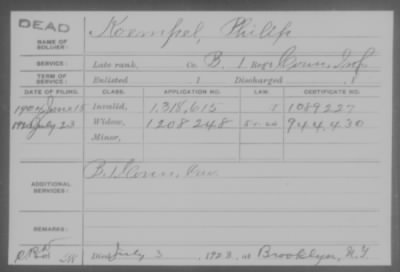 DEAD
NAME OF SOLDIER: Koempel, Philip
SERVICE: Late rank, Co. B. 1 Reg't Conn. Inf.
TERM OF SERVICE: Enlisted 1 Discharged 1
DATE OF FILING. CLASS. APPLICATION NO. LAW. CERTIFICATE NO.
1904 June 15 Invalid, 1,318,615 1089227
July 23 Widow, 1208248 944,430
Minor,
ADDITIONAL SERVICES: B. 1 Conn. Cav.
REMARKS:
Died July 3, 1923, at Brooklyn, N.Y.